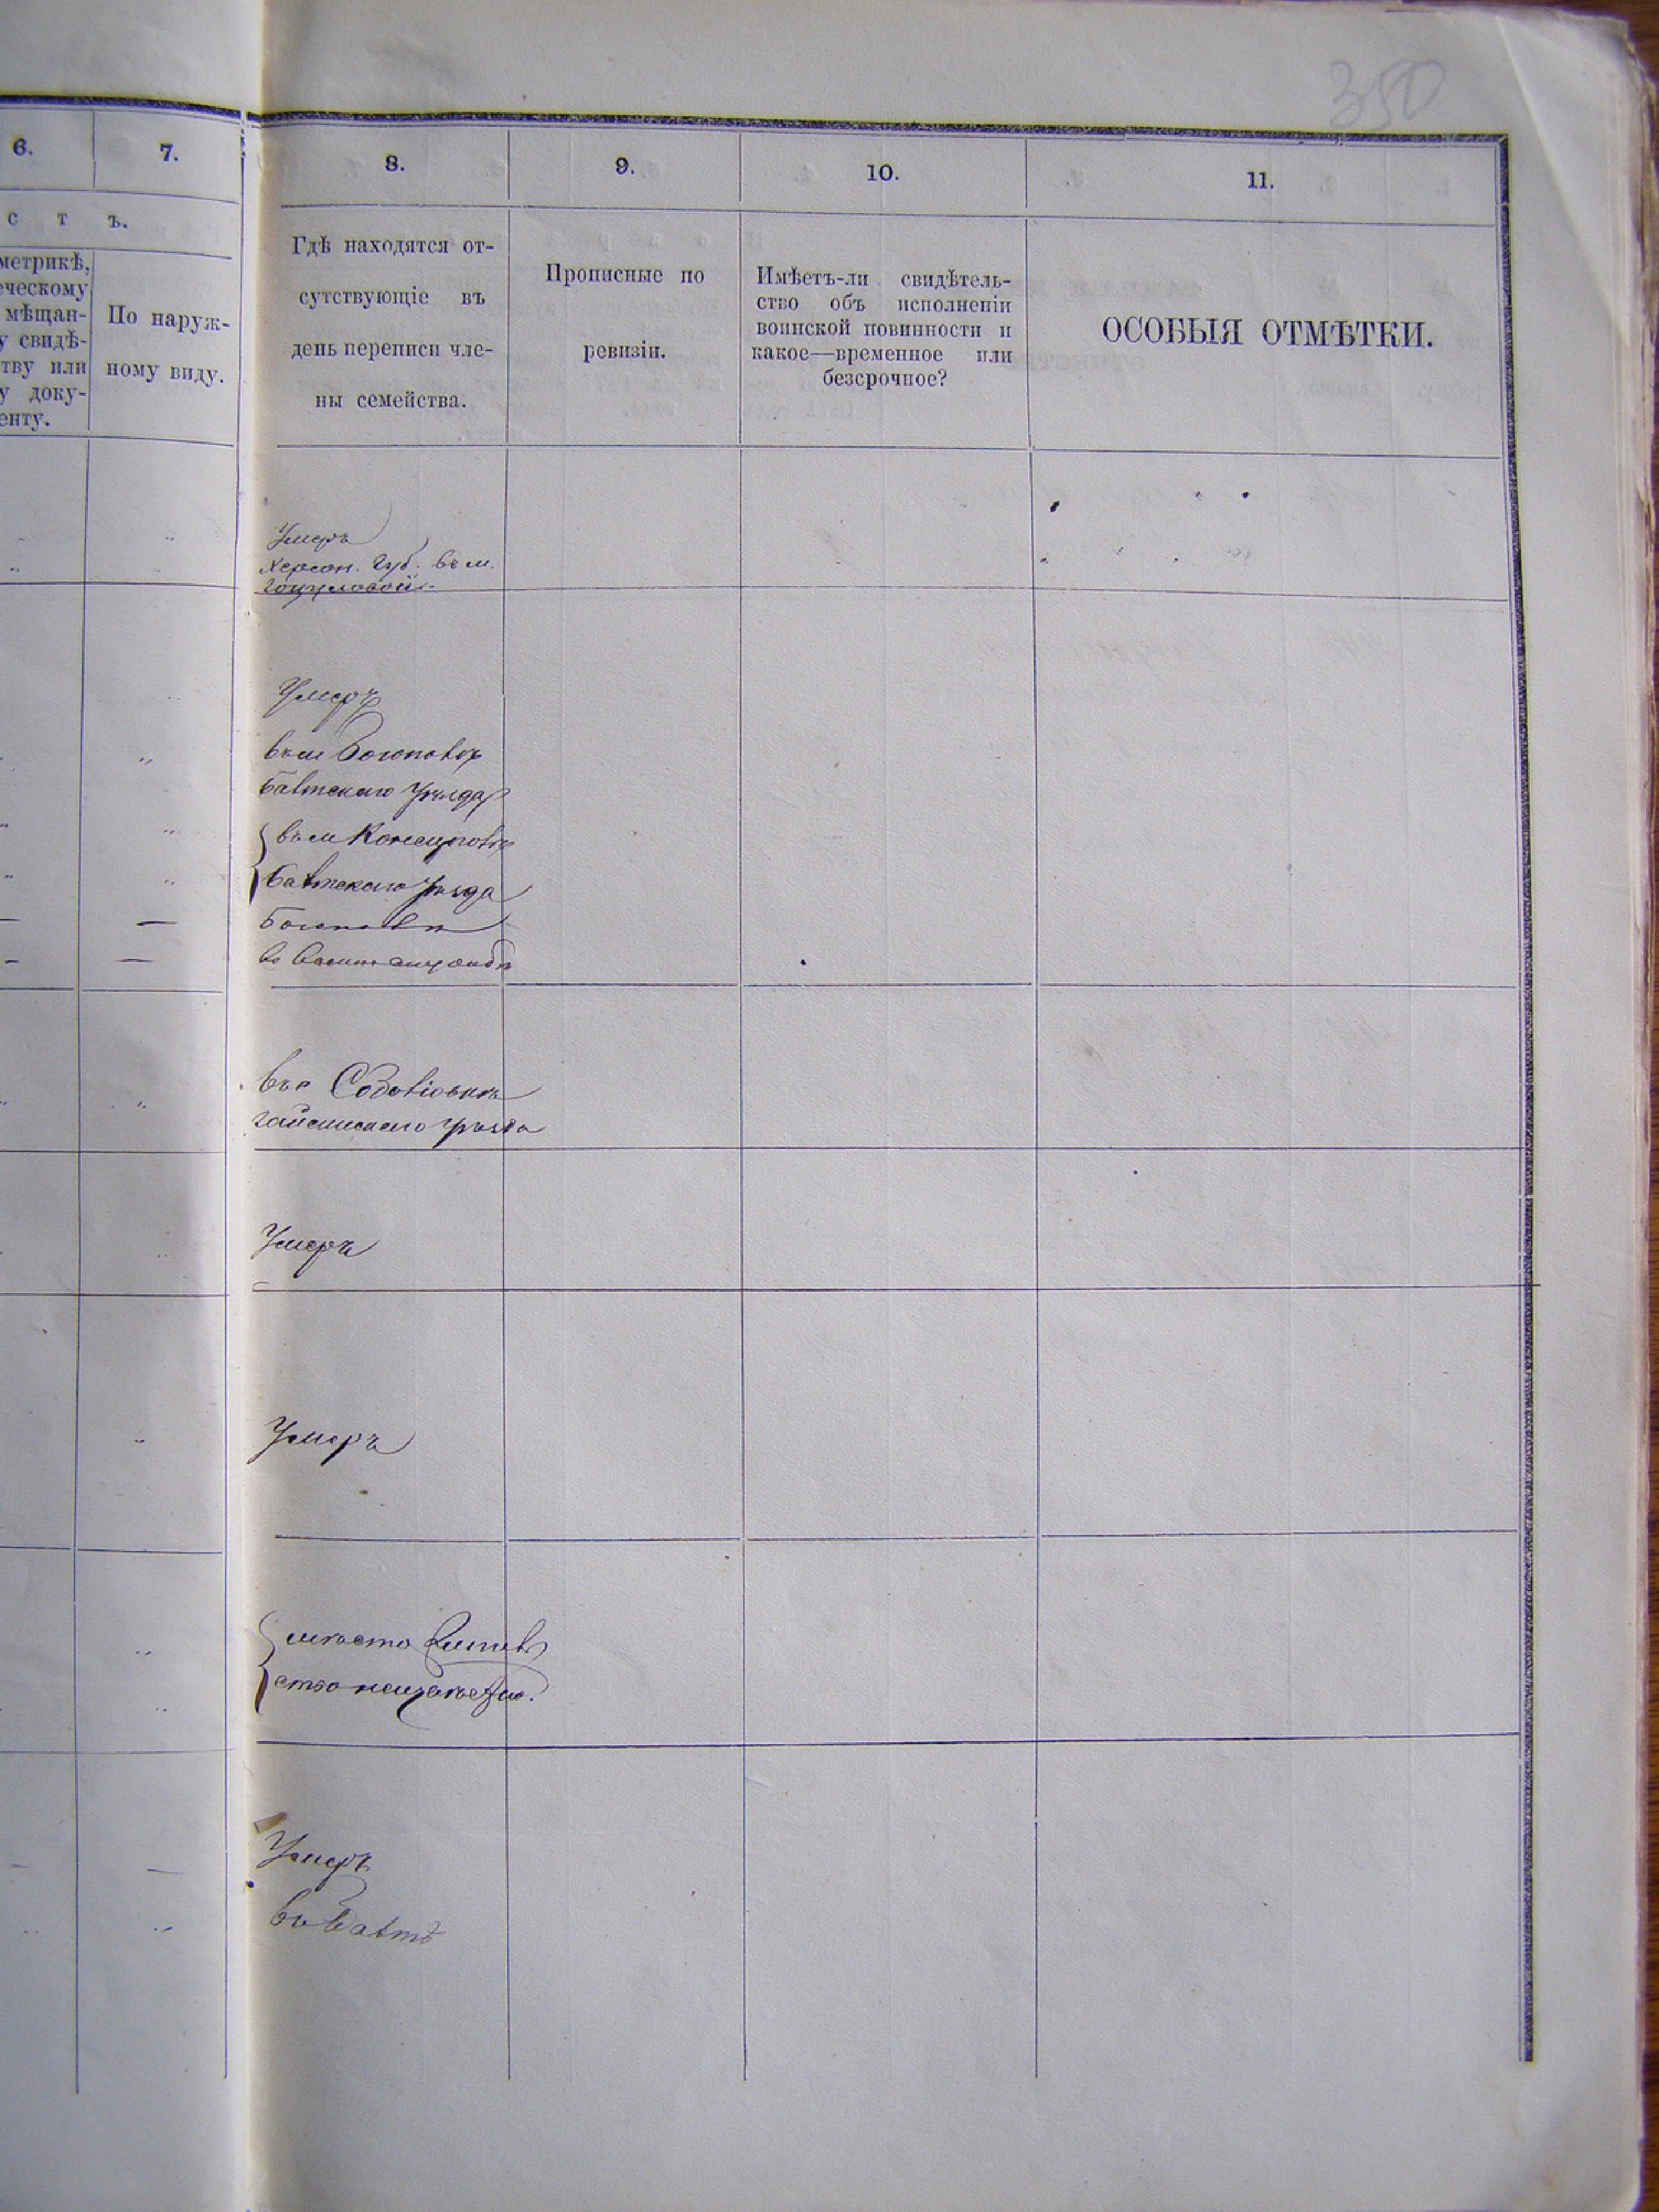 350
6.
7.
8.
9.
10.
11.
с т ъ.
метрикѣ,
ческому
мѣщан-
у свидѣ-
тву или
у доку-
енту.
По наруж-
ному виду.
Гдѣ находятся от-
сутствующіе въ
день переписи чле-
ны семейства.
Прописные по
ревизіи.
Имѣетъ-ли свидѣтель-
ство объ исполненіи
воинской повинности и
какое—временное или
безсрочное?
ОСОБЫЯ ОТМѢТКИ.
Умеръ
Херсон. Губ. въ м.
Умеръ
въ м Богополѣ
Балтскаго Уѣзда
въ м Конецполѣ
Балтскаго Уѣзда
Богополѣ
въ с
гайсинскаго уѣзда
Умеръ
Умеръ
мѣсто
ство неизвѣстно.
Умеръ
въ Балтѣ